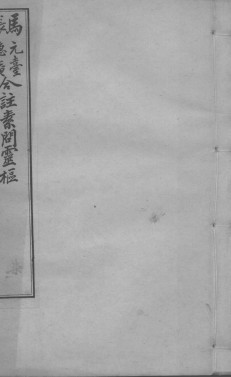 馬元臺
張隱庵合註素問靈樞